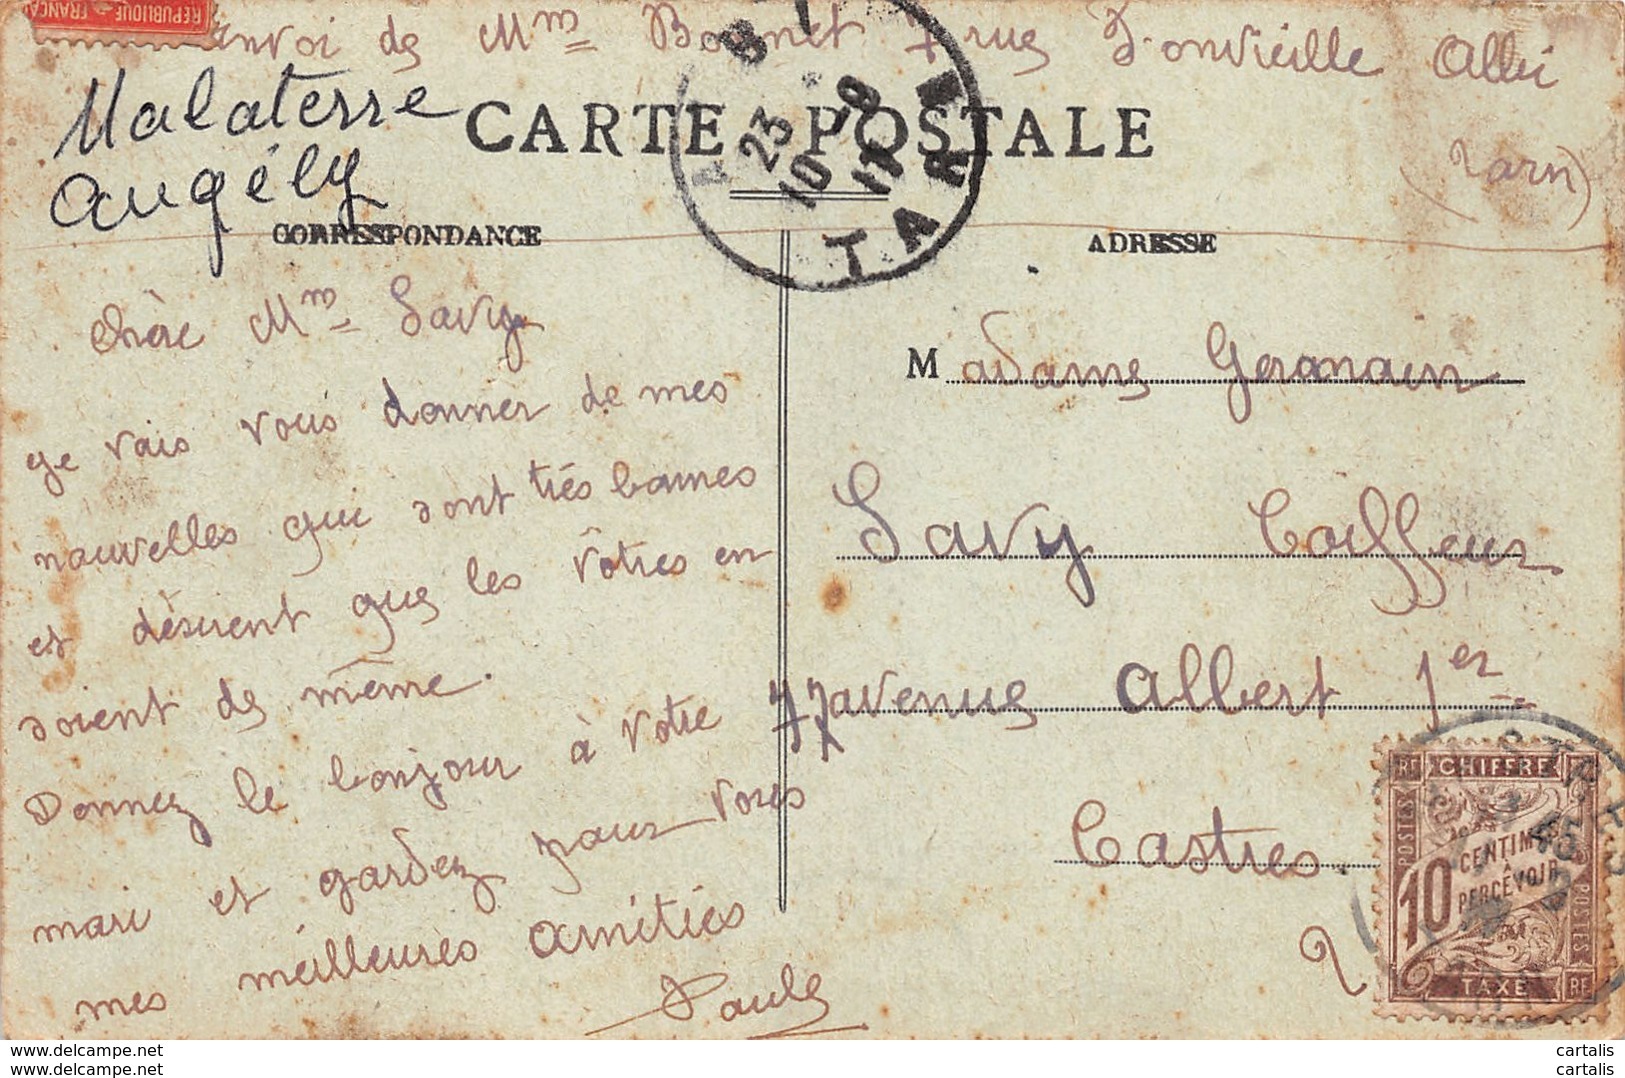 RÉPUBLIQUE FRANÇAI
envoi de Mme Bonnet 7 rue Fonvieille Albi
(Tarn)
Malaterre
Augély
CARTE POSTALE
ALBI
23 10
10 11
TARN
CORRESPONDANCE
ADRESSE
Chère Mme Savy
je vais vous donner de mes
nouvelles qui sont très bonnes
et désirent que les vôtres en
soient de même.
Donnez le bonjour à votre
mari et gardez pour vous
mes meilleures amitiés
Paule
Madame Germain
Savy Coiffeur
77 avenue Albert 1er
Castres
2
RF CHIFFRE RF
POSTES
10 CENTIMES
À
PERCEVOIR
POSTES
TAXE RF
CASTRES
www.delcampe.net
cartalis
www.delcampe.net
cartalis